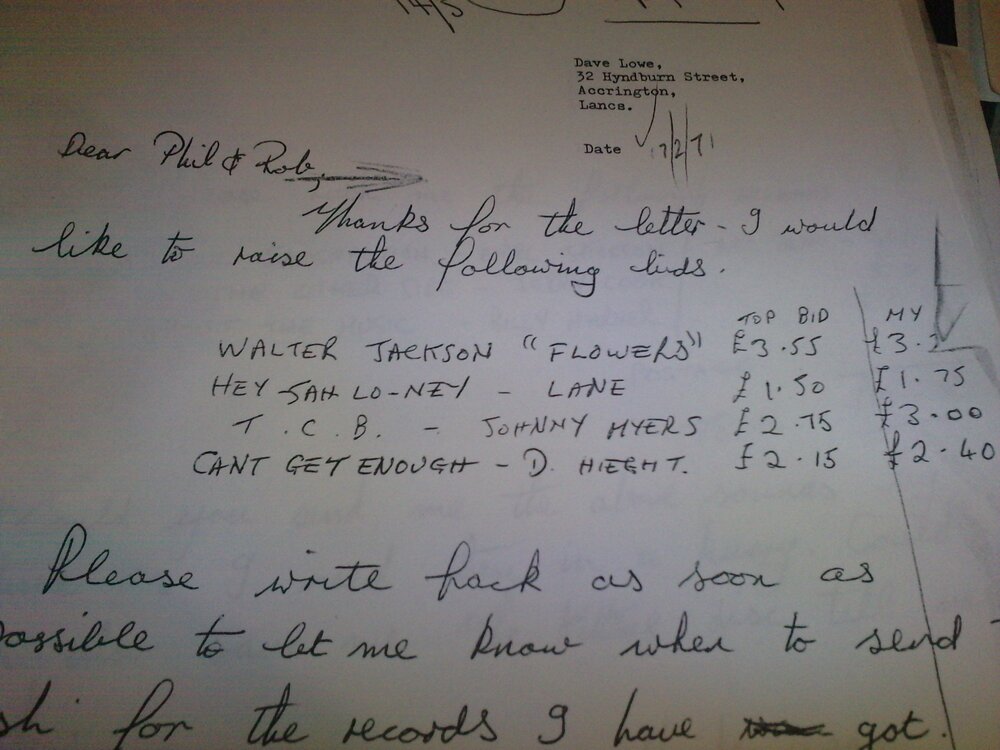 14/5
Dave Lowe,
32 Hyndburn Street,
Accrington,
Lancs.
Date 7/2/71
Dear Phil & Rob,
Thanks for the letter - I would
like to raise the following bids.
TOP BID MY
WALTER JACKSON "FLOWERS" £3.55
HEY SAH LO-NEY - LANE £1.50 £1.75
T.C.B. - JOHNNY MYERS £2.75 £3.00
CANT GET ENOUGH - D. HIEGHT. £2.15 £2.40
Please write back as soon as
possible to let me know when to send
for the records I have got.